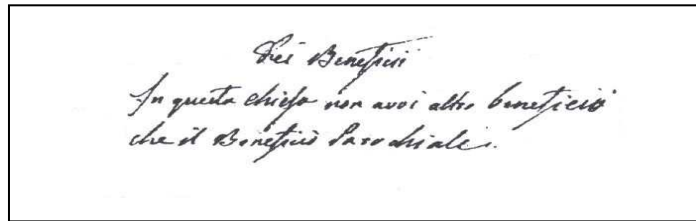 Dei Beneficii
In questa chiesa non avvi altro beneficio
che il Beneficio Parochiale.